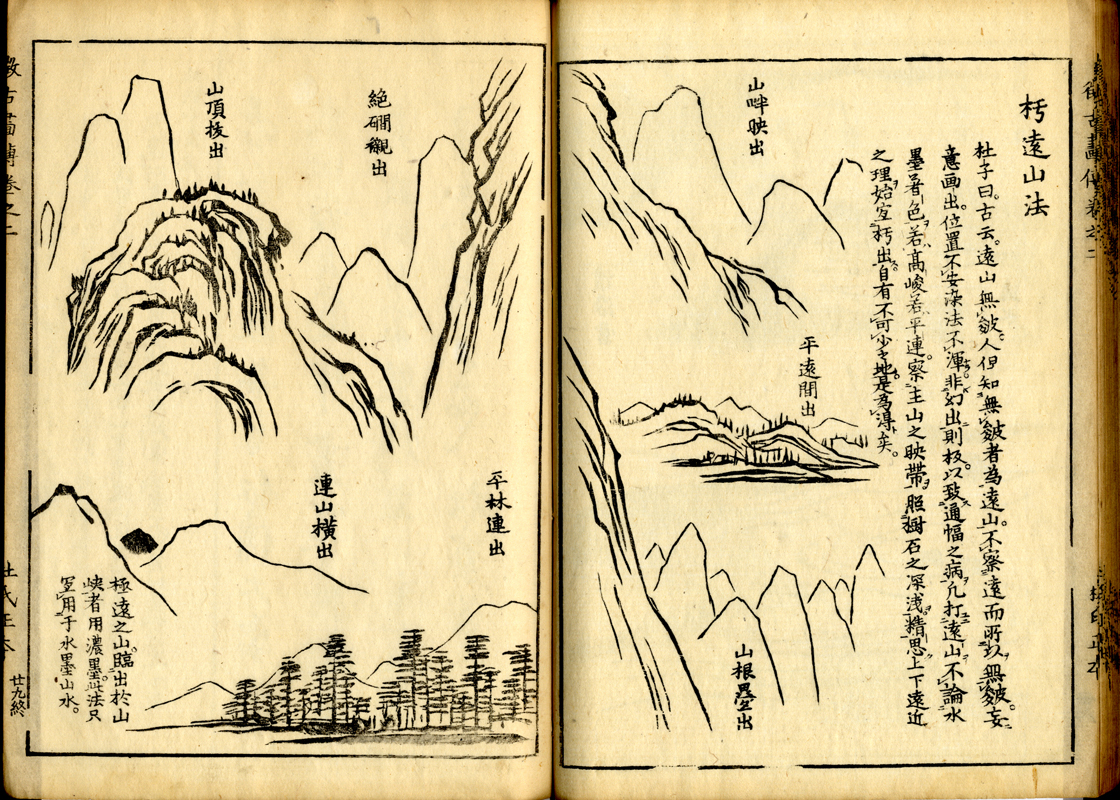 朽遠山法
杜子曰。古云。遠山無皴。人但知無皴者為遠山。不察遠而所以無皴。妄
意画出。位置不安。染法不渾。非幻出則板。以致通幅之病。凡打遠山不論水
墨著色。若高峻若平連。察主山之映帶。照樹石之深浅。精思上下遠近
之理。始宜朽出。自有不可少之地。是為得矣。
山畔映出
平遠間出
山根疊出
絕磵襯出
山頂拔出
平林連出
連山橫出
極遠之山。臨出於山
峡者用濃墨。此法只
宜用于水墨山水。
卷之二
廿九終